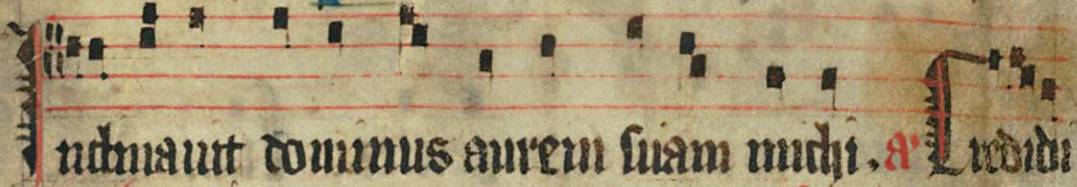 Inclinavit dominus aurem suam michi. a Credidi